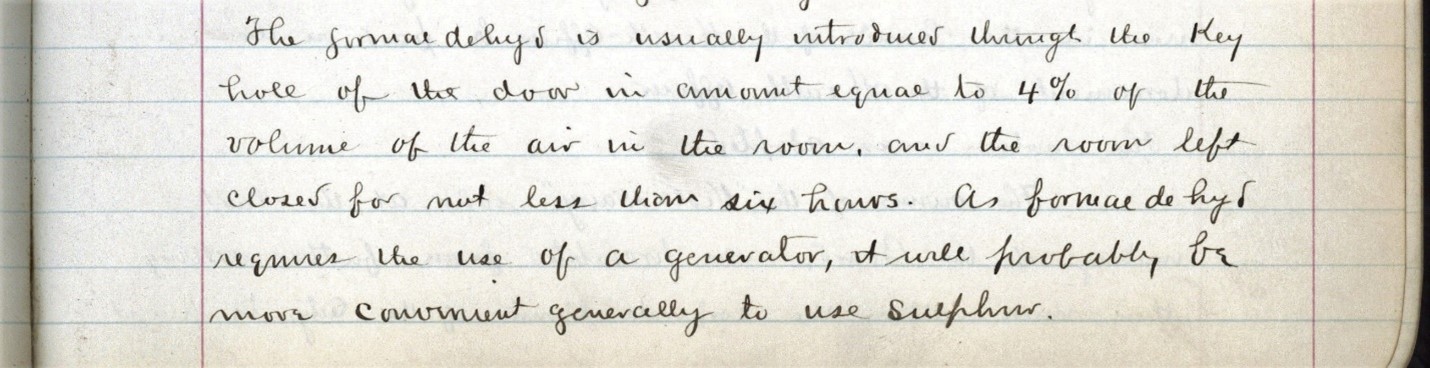 The formaldehyd is usually introduced through the Key
hole of the door in amount equal to 4% of the
volume of the air in the room, and the room left
closed for not less than six hours. As formaldehyd
requires the use of a generator, it will probably be
more convenient generally to use Sulphur.